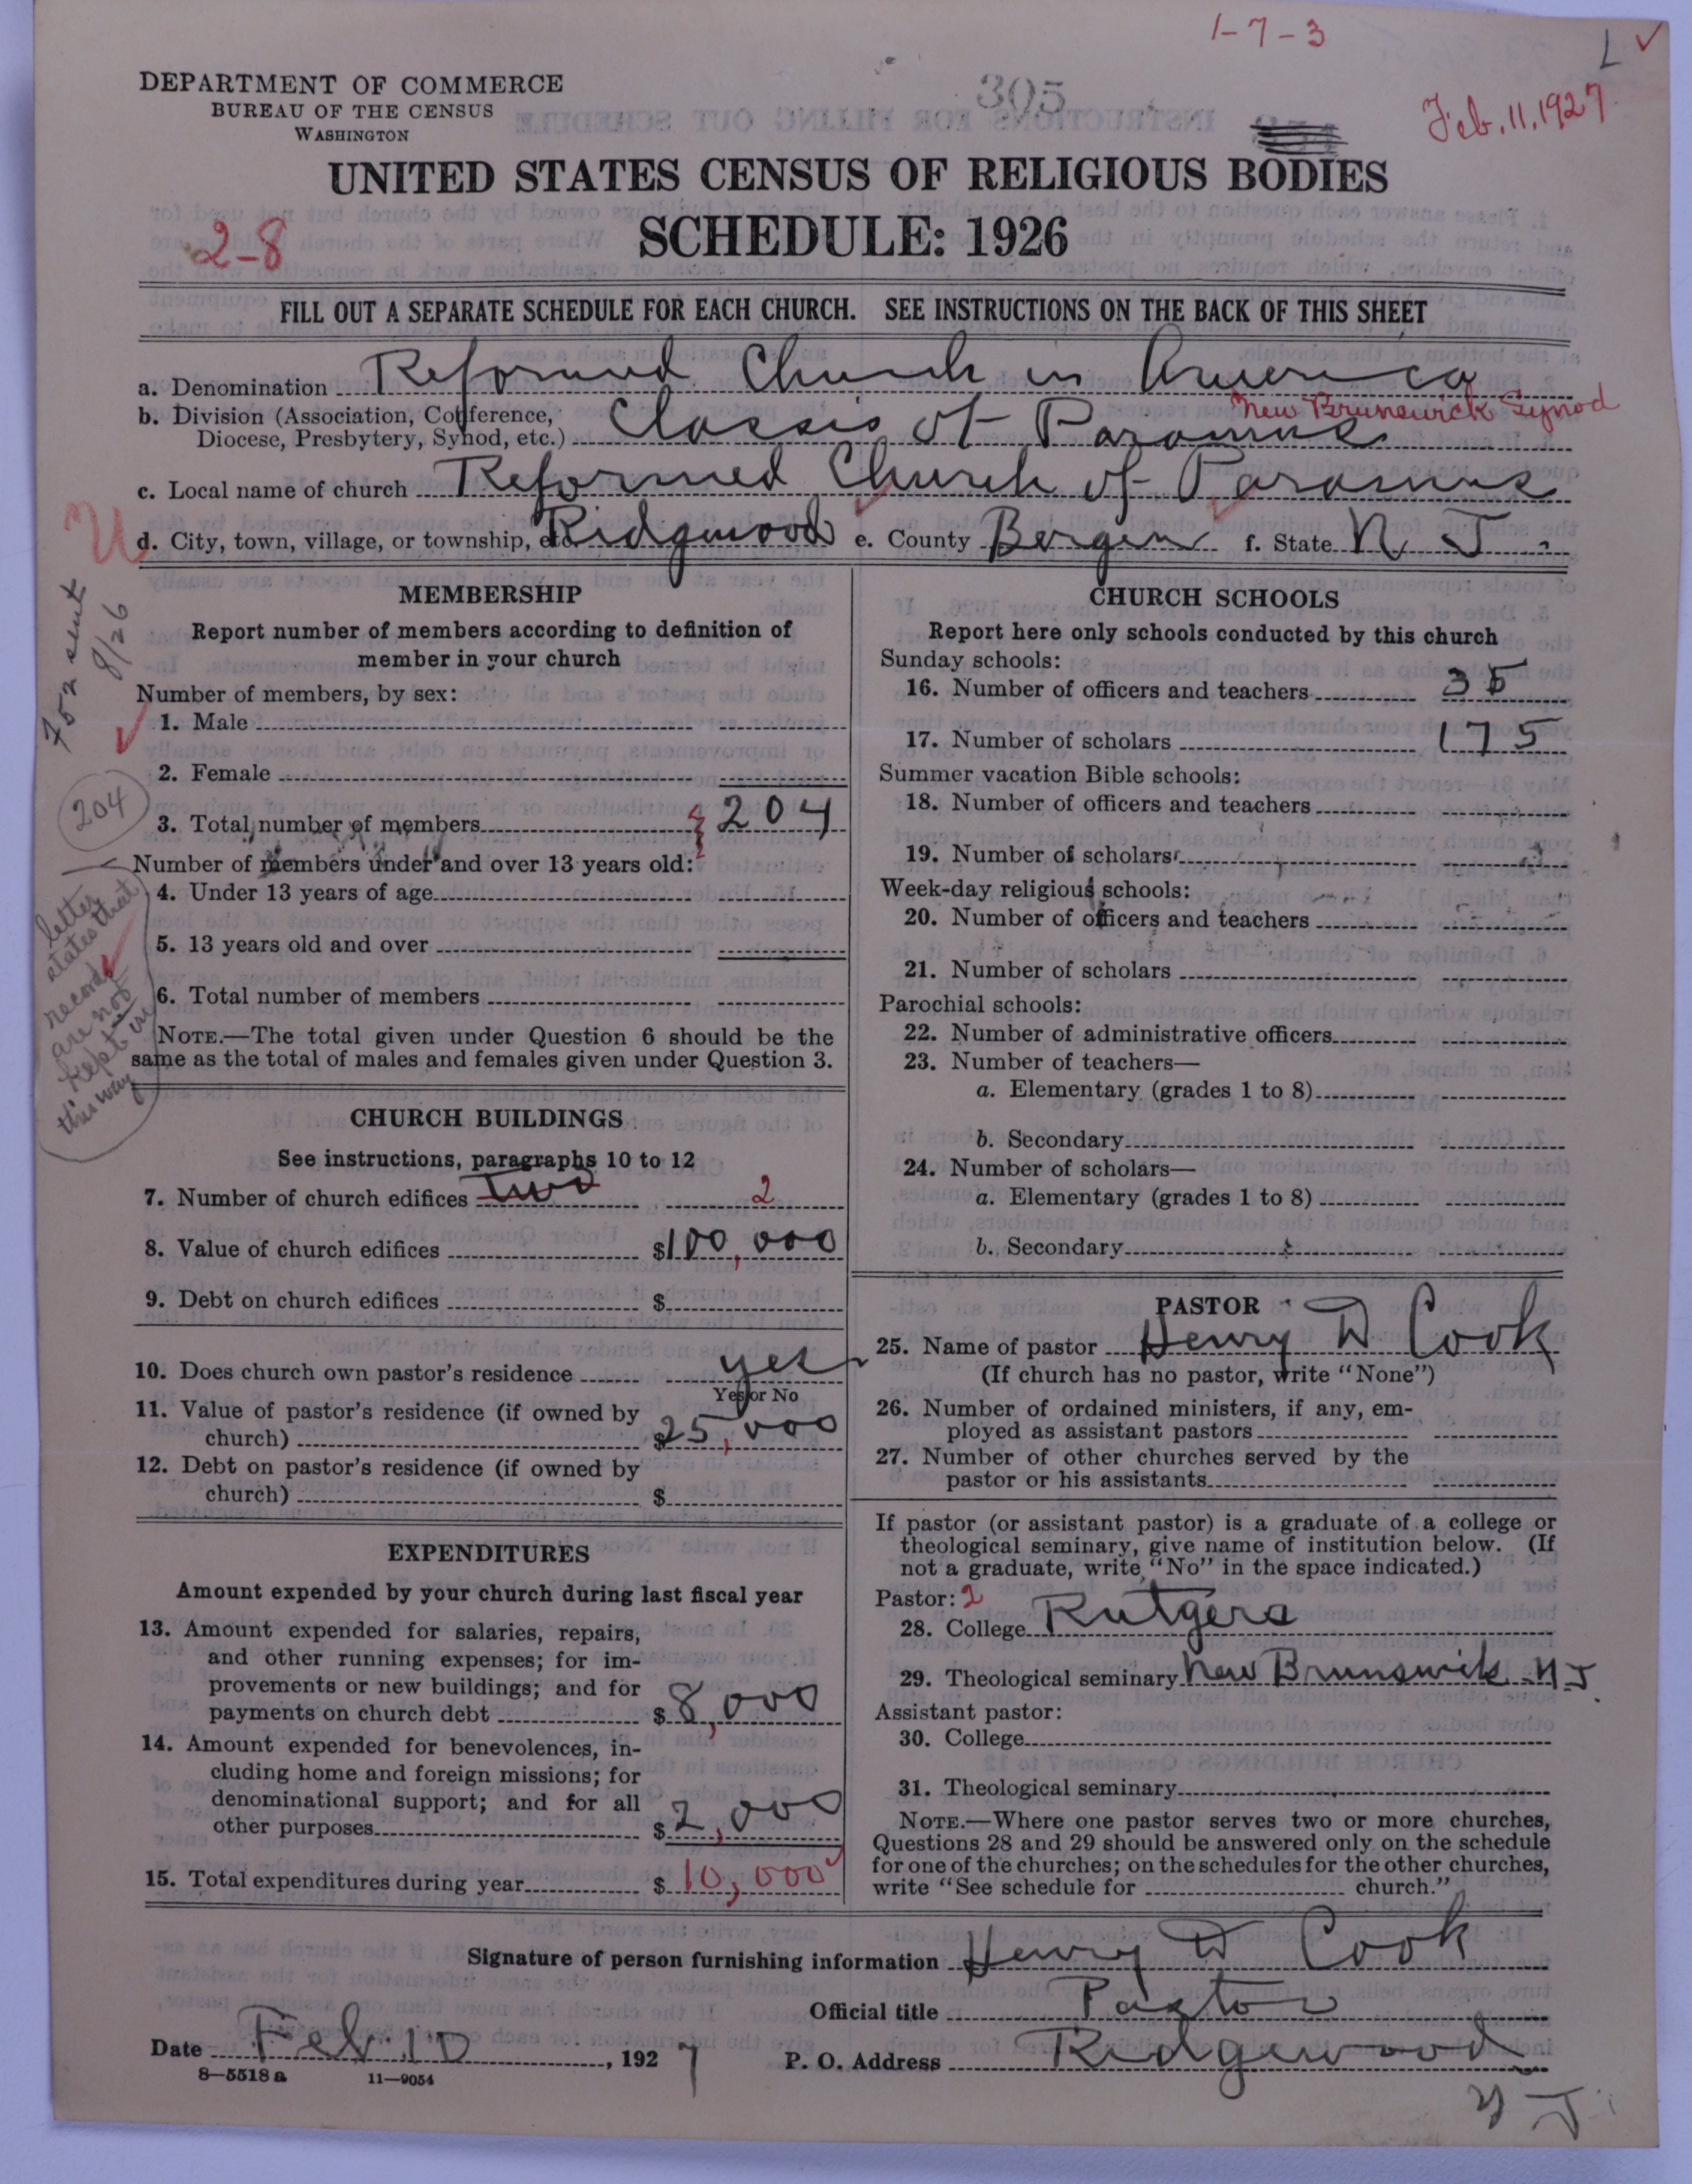 1-7-3
L ✓
DEPARTMENT OF COMMERCE
BUREAU OF THE CENSUS
WASHINGTON
305
Feb. 11, 1927
UNITED STATES CENSUS OF RELIGIOUS BODIES
SCHEDULE: 1926
2-8
FILL OUT A SEPARATE SCHEDULE FOR EACH CHURCH. SEE INSTRUCTIONS ON THE BACK OF THIS SHEET
a. Denomination Reformed Church in America
New Brunswick Synod
b. Division (Association, Conference,
Diocese, Presbytery, Synod, etc.) Classis of Paramus
c. Local name of church Reformed Church of Paramus
U
d. City, town, village, or township, etc. Ridgewood e. County Bergen f. State N. J.
sent 8/26
MEMBERSHIP
Report number of members according to definition of
member in your church
Number of members, by sex:
1. Male
2. Female
204
3. Total number of members 204
Number of members under and over 13 years old:
4. Under 13 years of age
5. 13 years old and over
6. Total number of members
letter
states that
records
are not
kept in
this way
NOTE.—The total given under Question 6 should be the
same as the total of males and females given under Question 3.
CHURCH BUILDINGS
See instructions, paragraphs 10 to 12
7. Number of church edifices two 2
8. Value of church edifices $100,000
9. Debt on church edifices $
10. Does church own pastor's residence yes
Yes or No
11. Value of pastor's residence (if owned by
church) $25,000
12. Debt on pastor's residence (if owned by
church) $
EXPENDITURES
Amount expended by your church during last fiscal year
13. Amount expended for salaries, repairs,
and other running expenses; for im-
provements or new buildings; and for
payments on church debt $8,000
14. Amount expended for benevolences, in-
cluding home and foreign missions; for
denominational support; and for all
other purposes $2,000
15. Total expenditures during year $10,000
CHURCH SCHOOLS
Report here only schools conducted by this church
Sunday schools:
16. Number of officers and teachers
17. Number of scholars 175
Summer vacation Bible schools:
18. Number of officers and teachers
19. Number of scholars
Week-day religious schools:
20. Number of officers and teachers
21. Number of scholars
Parochial schools:
22. Number of administrative officers
23. Number of teachers—
a. Elementary (grades 1 to 8)
b. Secondary
24. Number of scholars—
a. Elementary (grades 1 to 8)
b. Secondary
PASTOR
25. Name of pastor Henry D Cook
(If church has no pastor, write "None")
26. Number of ordained ministers, if any, em-
ployed as assistant pastors
27. Number of other churches served by the
pastor or his assistants
If pastor (or assistant pastor) is a graduate of a college or
theological seminary, give name of institution below. (If
not a graduate, write "No" in the space indicated.)
Pastor: 2
28. College Rutgers
29. Theological seminary New Brunswick N J.
Assistant pastor:
30. College
31. Theological seminary
NOTE.—Where one pastor serves two or more churches,
Questions 28 and 29 should be answered only on the schedule
for one of the churches; on the schedules for the other churches,
write "See schedule for church."
Signature of person furnishing information Henry D Cook
Official title Pastor
Date Feb. 10, 1927
P. O. Address Ridgewood
N J.
8—5518 a 11—9054